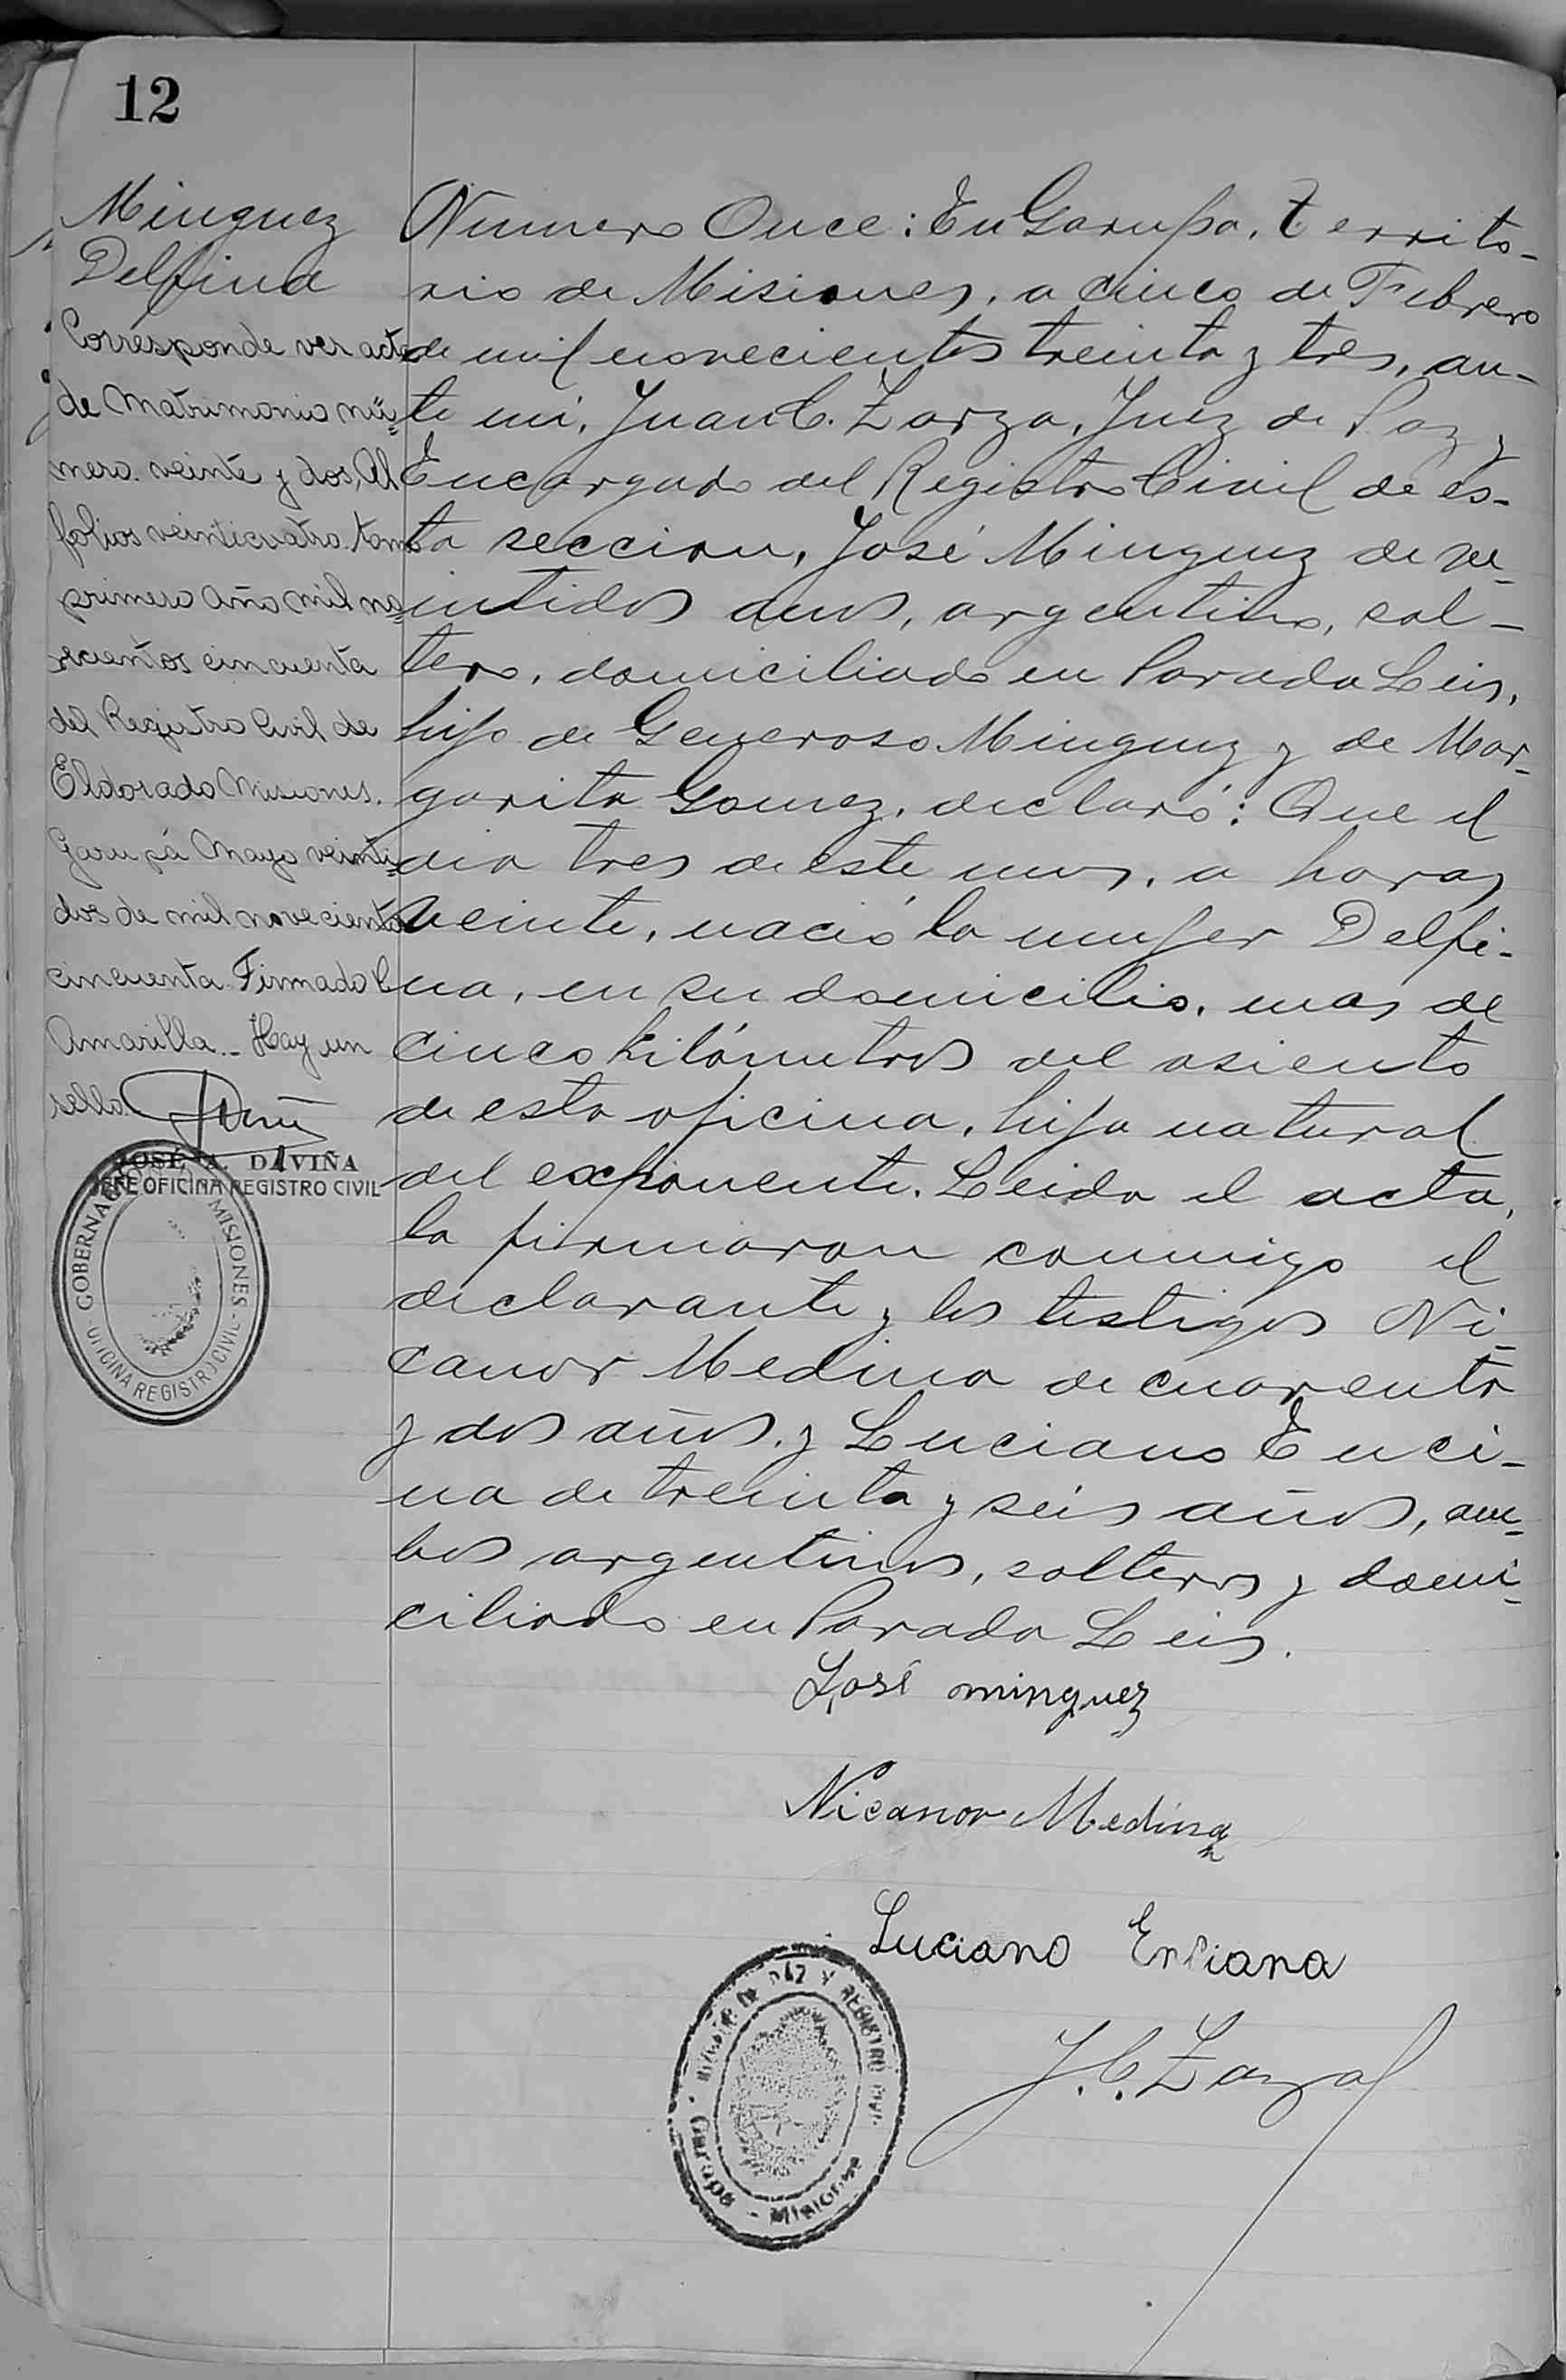 12
Minguez
Delfina
Corresponde ver acta
de Matrimonio nú=
mero. veinte y dos, Al
folios veinticuatro. tomo
primero Año mil no=
vecientos cincuenta
del Registro Civil de
Eldorado Misiones.
Garupá Mayo veinti=
dos de mil novecientos
cincuenta. Firmado C
Amarilla.- Hay un
sello.
JOSÉ A. DAVIÑA
JEFE OFICINA REGISTRO CIVIL
GOBERNA MISIONES - OFICINA REGISTRO CIVIL -
Numero Once: En Garupa, Territo-
rio de Misiones, a cinco de Febrero
de mil novecientos treinta y tres, an-
te mi, Juan C. Zarza, Juez de Paz y
Encargado del Registro Civil de es-
ta seccion, José Minguez de ve-
intidos anos, argentino, sol-
tero, domiciliado en Parada Leis,
hijo de Generoso Minguez y de Mar-
garita Gomez, declaró: Que el
dia tres de este mes, a horas
veinte, nació la mujer Delfi-
na, en su domicilio, mas de
cinco kilómetros del asiento
de esta oficina, hija natural
del exponente. Leida el acta,
la firmaron conmigo el
declarante y los testigos Ni-
canor Medina de cuarenta
y dos años, y Luciano Enci-
na de treinta y seis años, am-
bos argentinos, solteros y domi-
ciliado en Parada Leis.
José minguez
Nicanor Medina
Luciano
J. C. Zarza
DE PAZ Y REGISTRO CIVIL
Garupa - Misiones